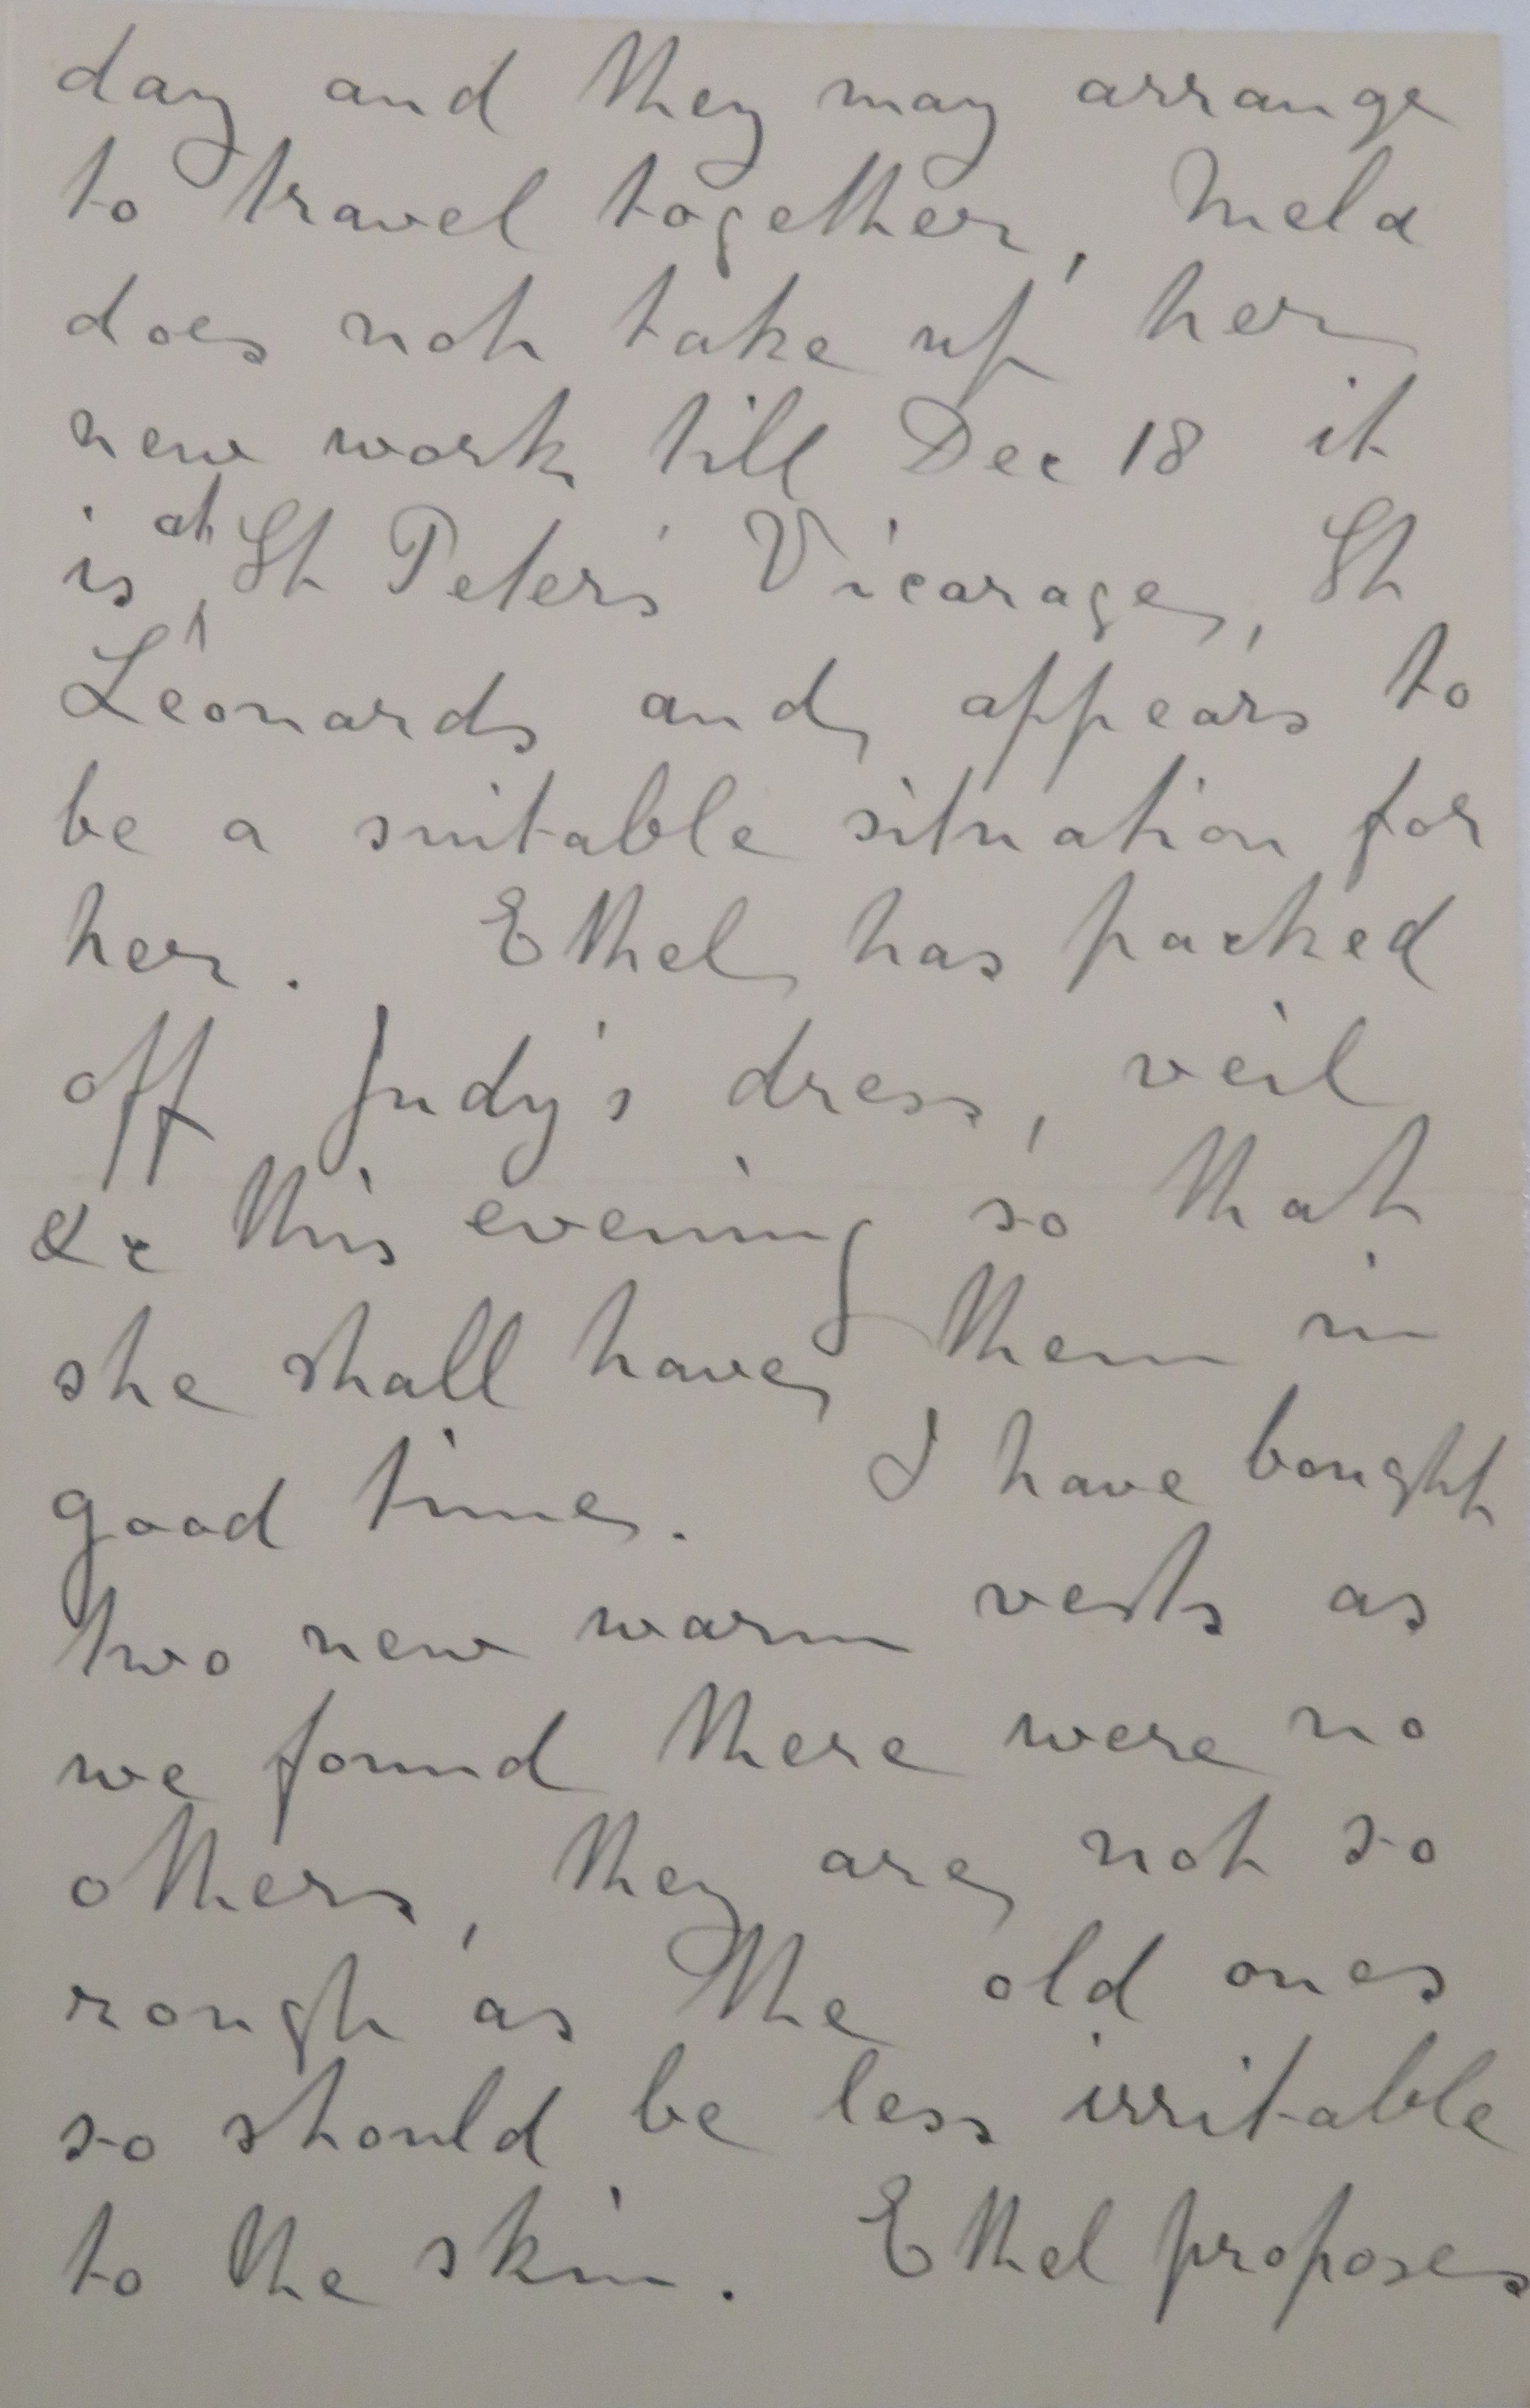 day and they may arrange
to travel together, Mela
does not take up her
new work till Dec 18 it
is at St Peter's Vicarage, St
Leonards and appears to
be a suitable situation for
her. Ethel has packed
off Judy's dress, veil
&c this evening so that
she shall have them in
good time. I have bought
two new warm vests as
we found there were no
others, they are not so
rough as the old ones
so should be less irritable
to the skin. Ethel proposes